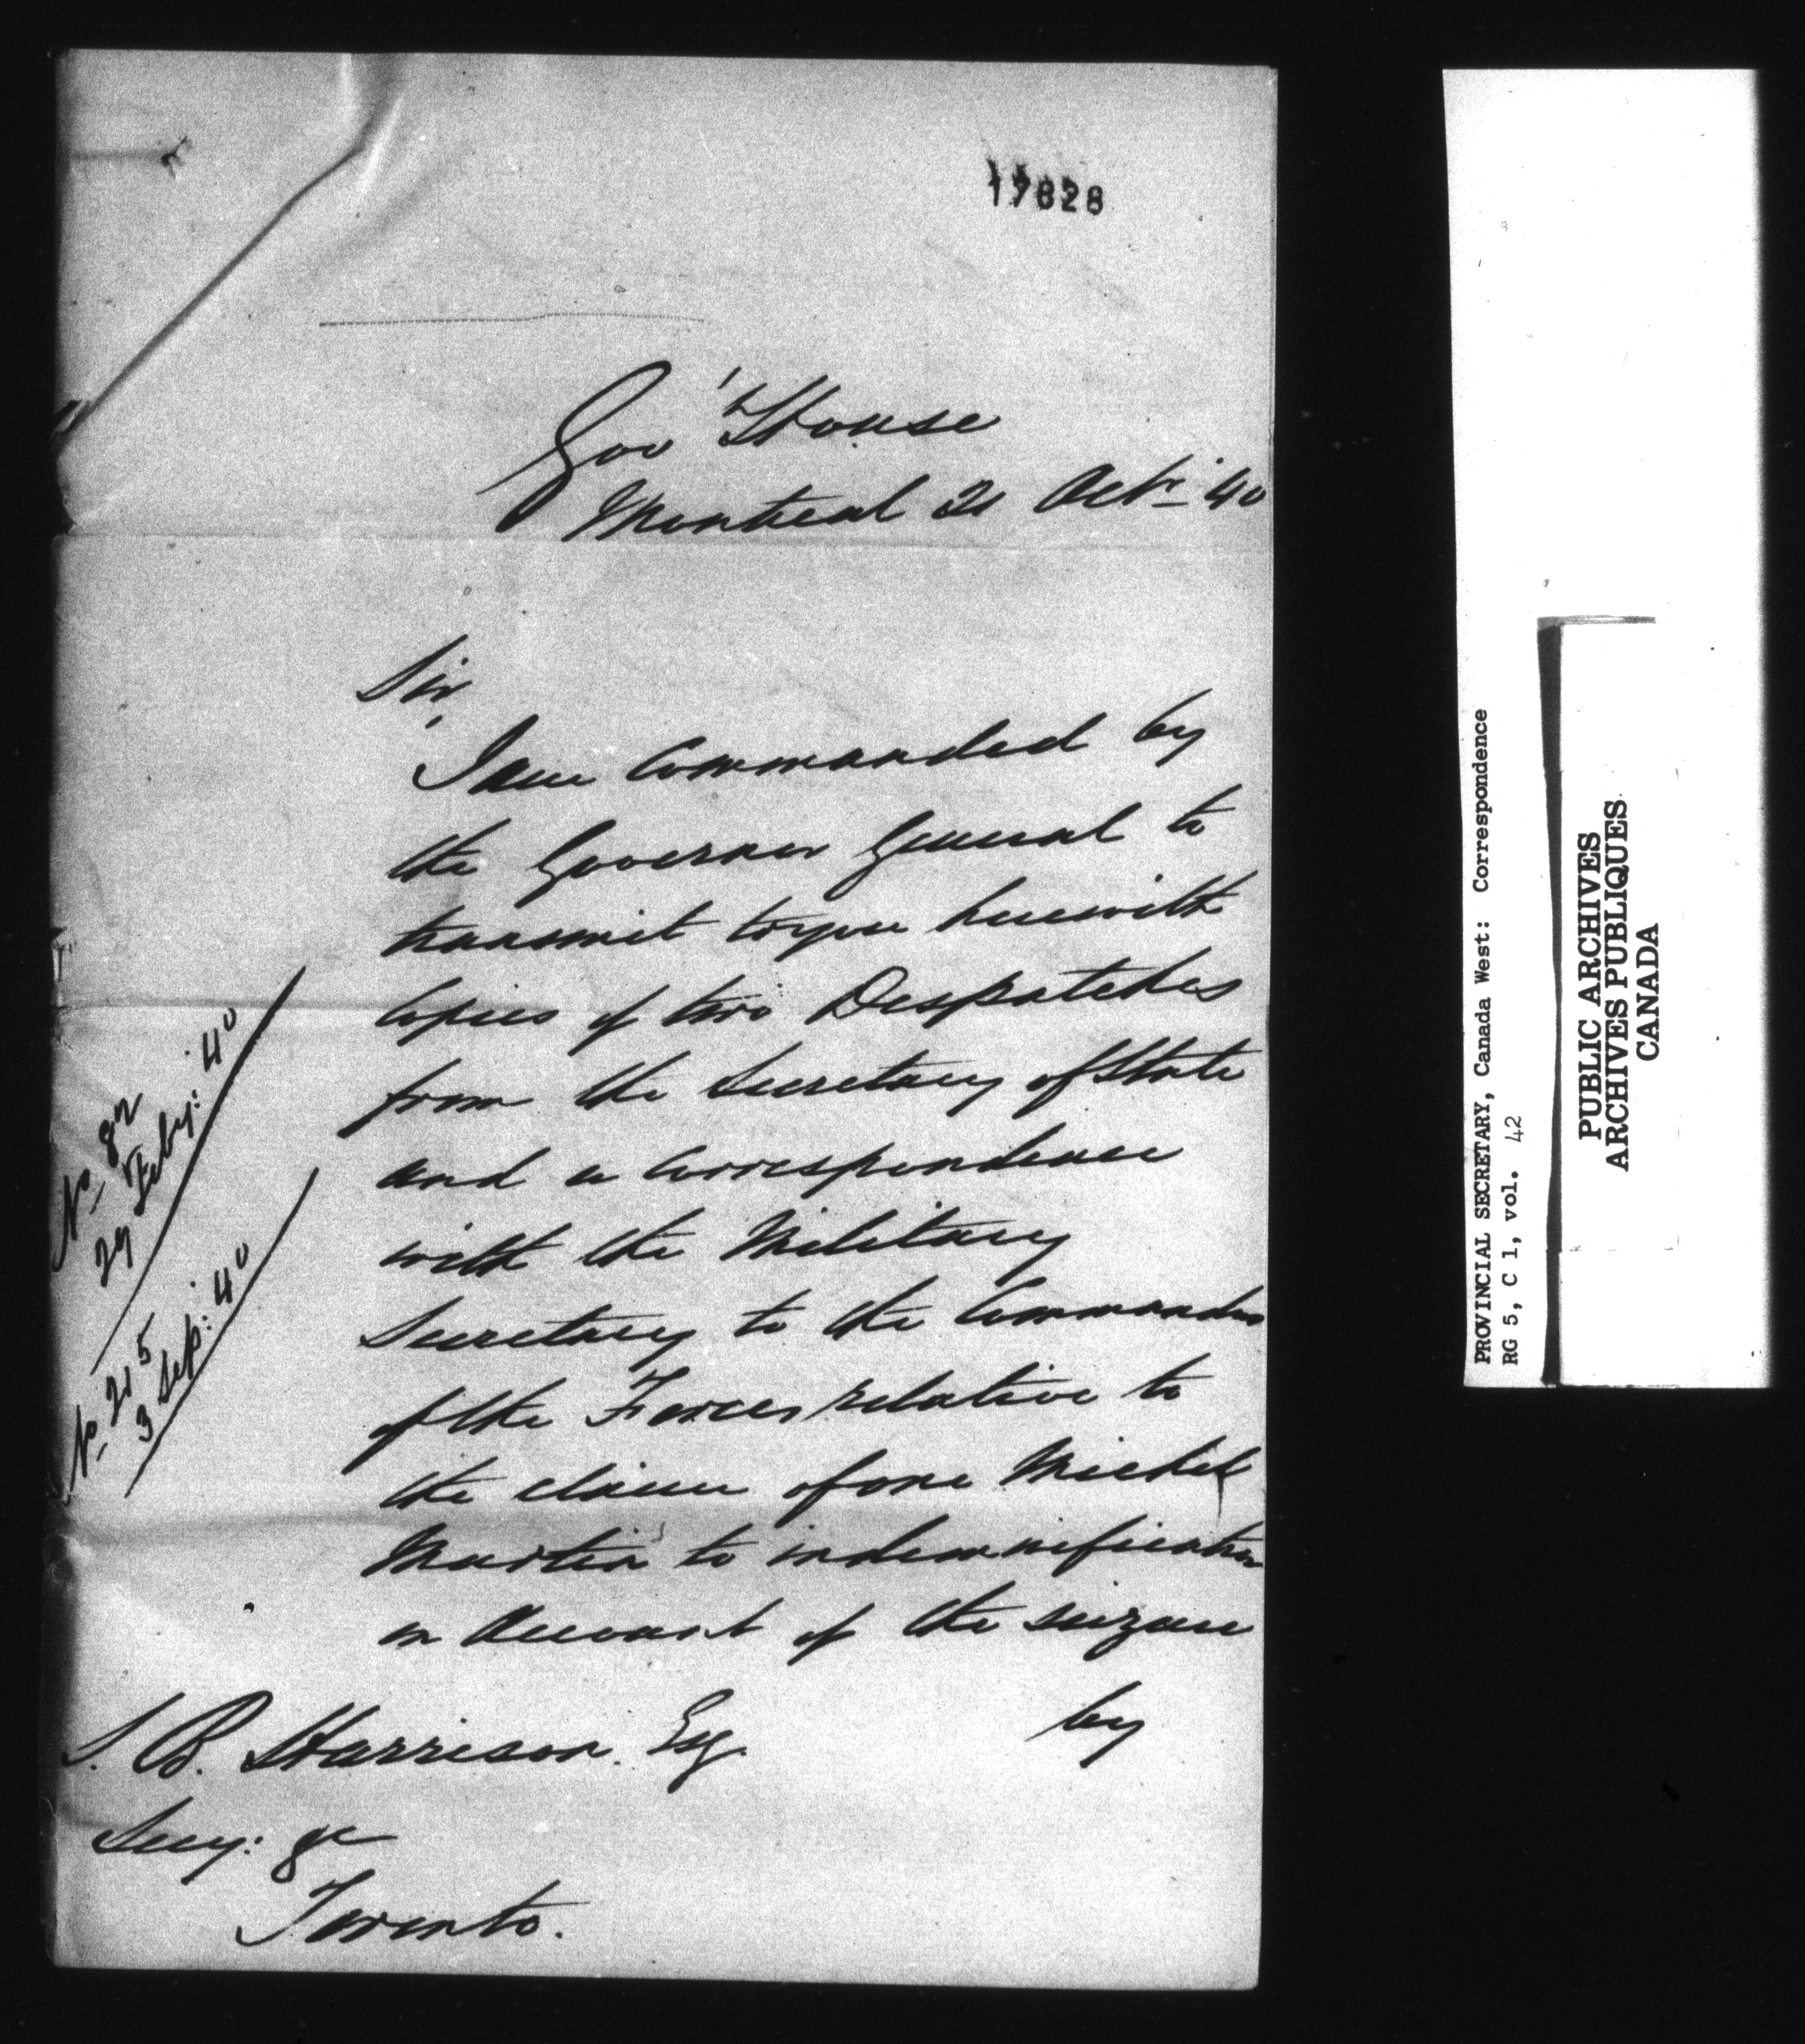 17828
Gov' House
Montreal 21 Octr '40
Sir
I am Commanded by
the Governor General to
transmit to you herewith
Copies of two Despatches
from the Secretary of State
and a Correspondence
with the Military
Secretary to the Commander
of the Forces relative to
the claim of one Michel
Martin to indemnification
on Account of the seizure
by
No 82
29 Feby: '40
No 215
3 Sep: '40
S. B. Harrison. Esq.
Secy: &c
Toronto.
PROVINCIAL SECRETARY, Canada West: Correspondence
RG 5, C 1, vol. 42
PUBLIC ARCHIVES
ARCHIVES PUBLIQUES
CANADA